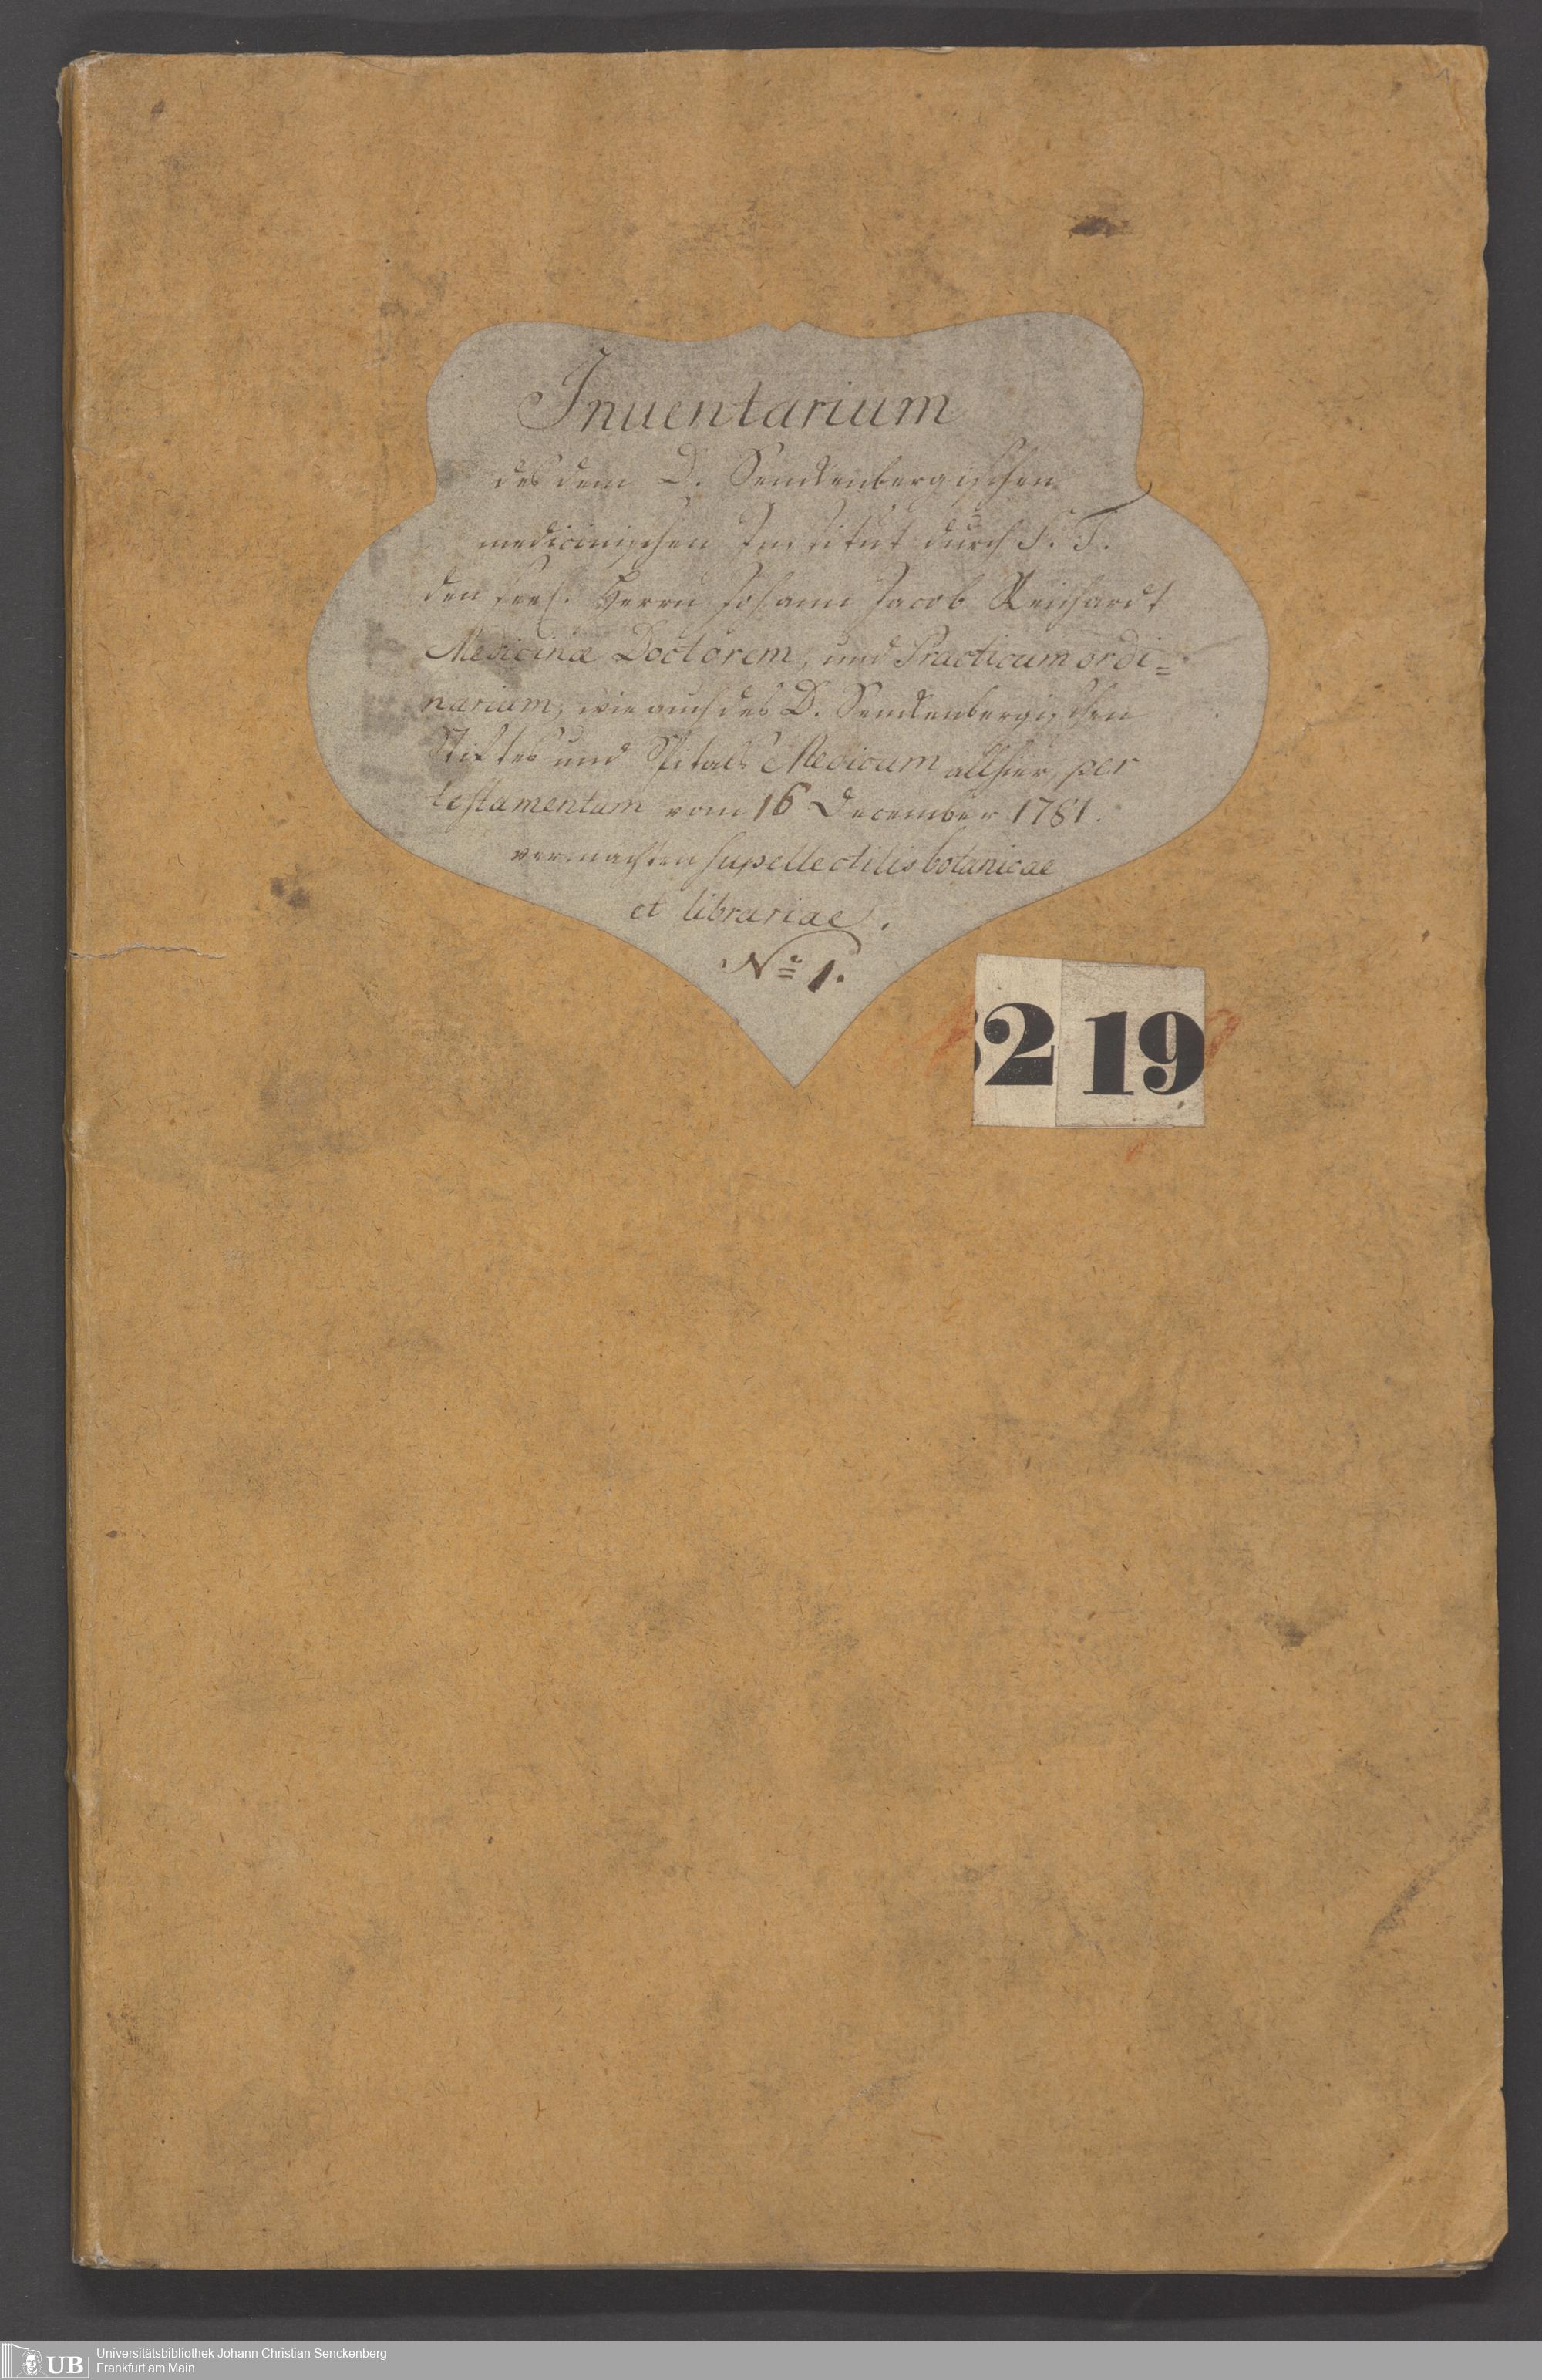 Inuentarium
des dem D. Senckenbergischen
medicinischen Institut durch S. T.
den seel. Herrn Johann Jacob Reichardt
Medicinæ Doctorem, und Practicum ordi=
narium, wie auch des D. Senckenbergischen
Stiftes und Spitals Medicum allhier, per
testamentum vom 16 December 1781.
vermachten supellectilis botanicae
et librariae.
No 1.
2 19
UB Universitätsbibliothek Johann Christian Senckenberg
Frankfurt am Main